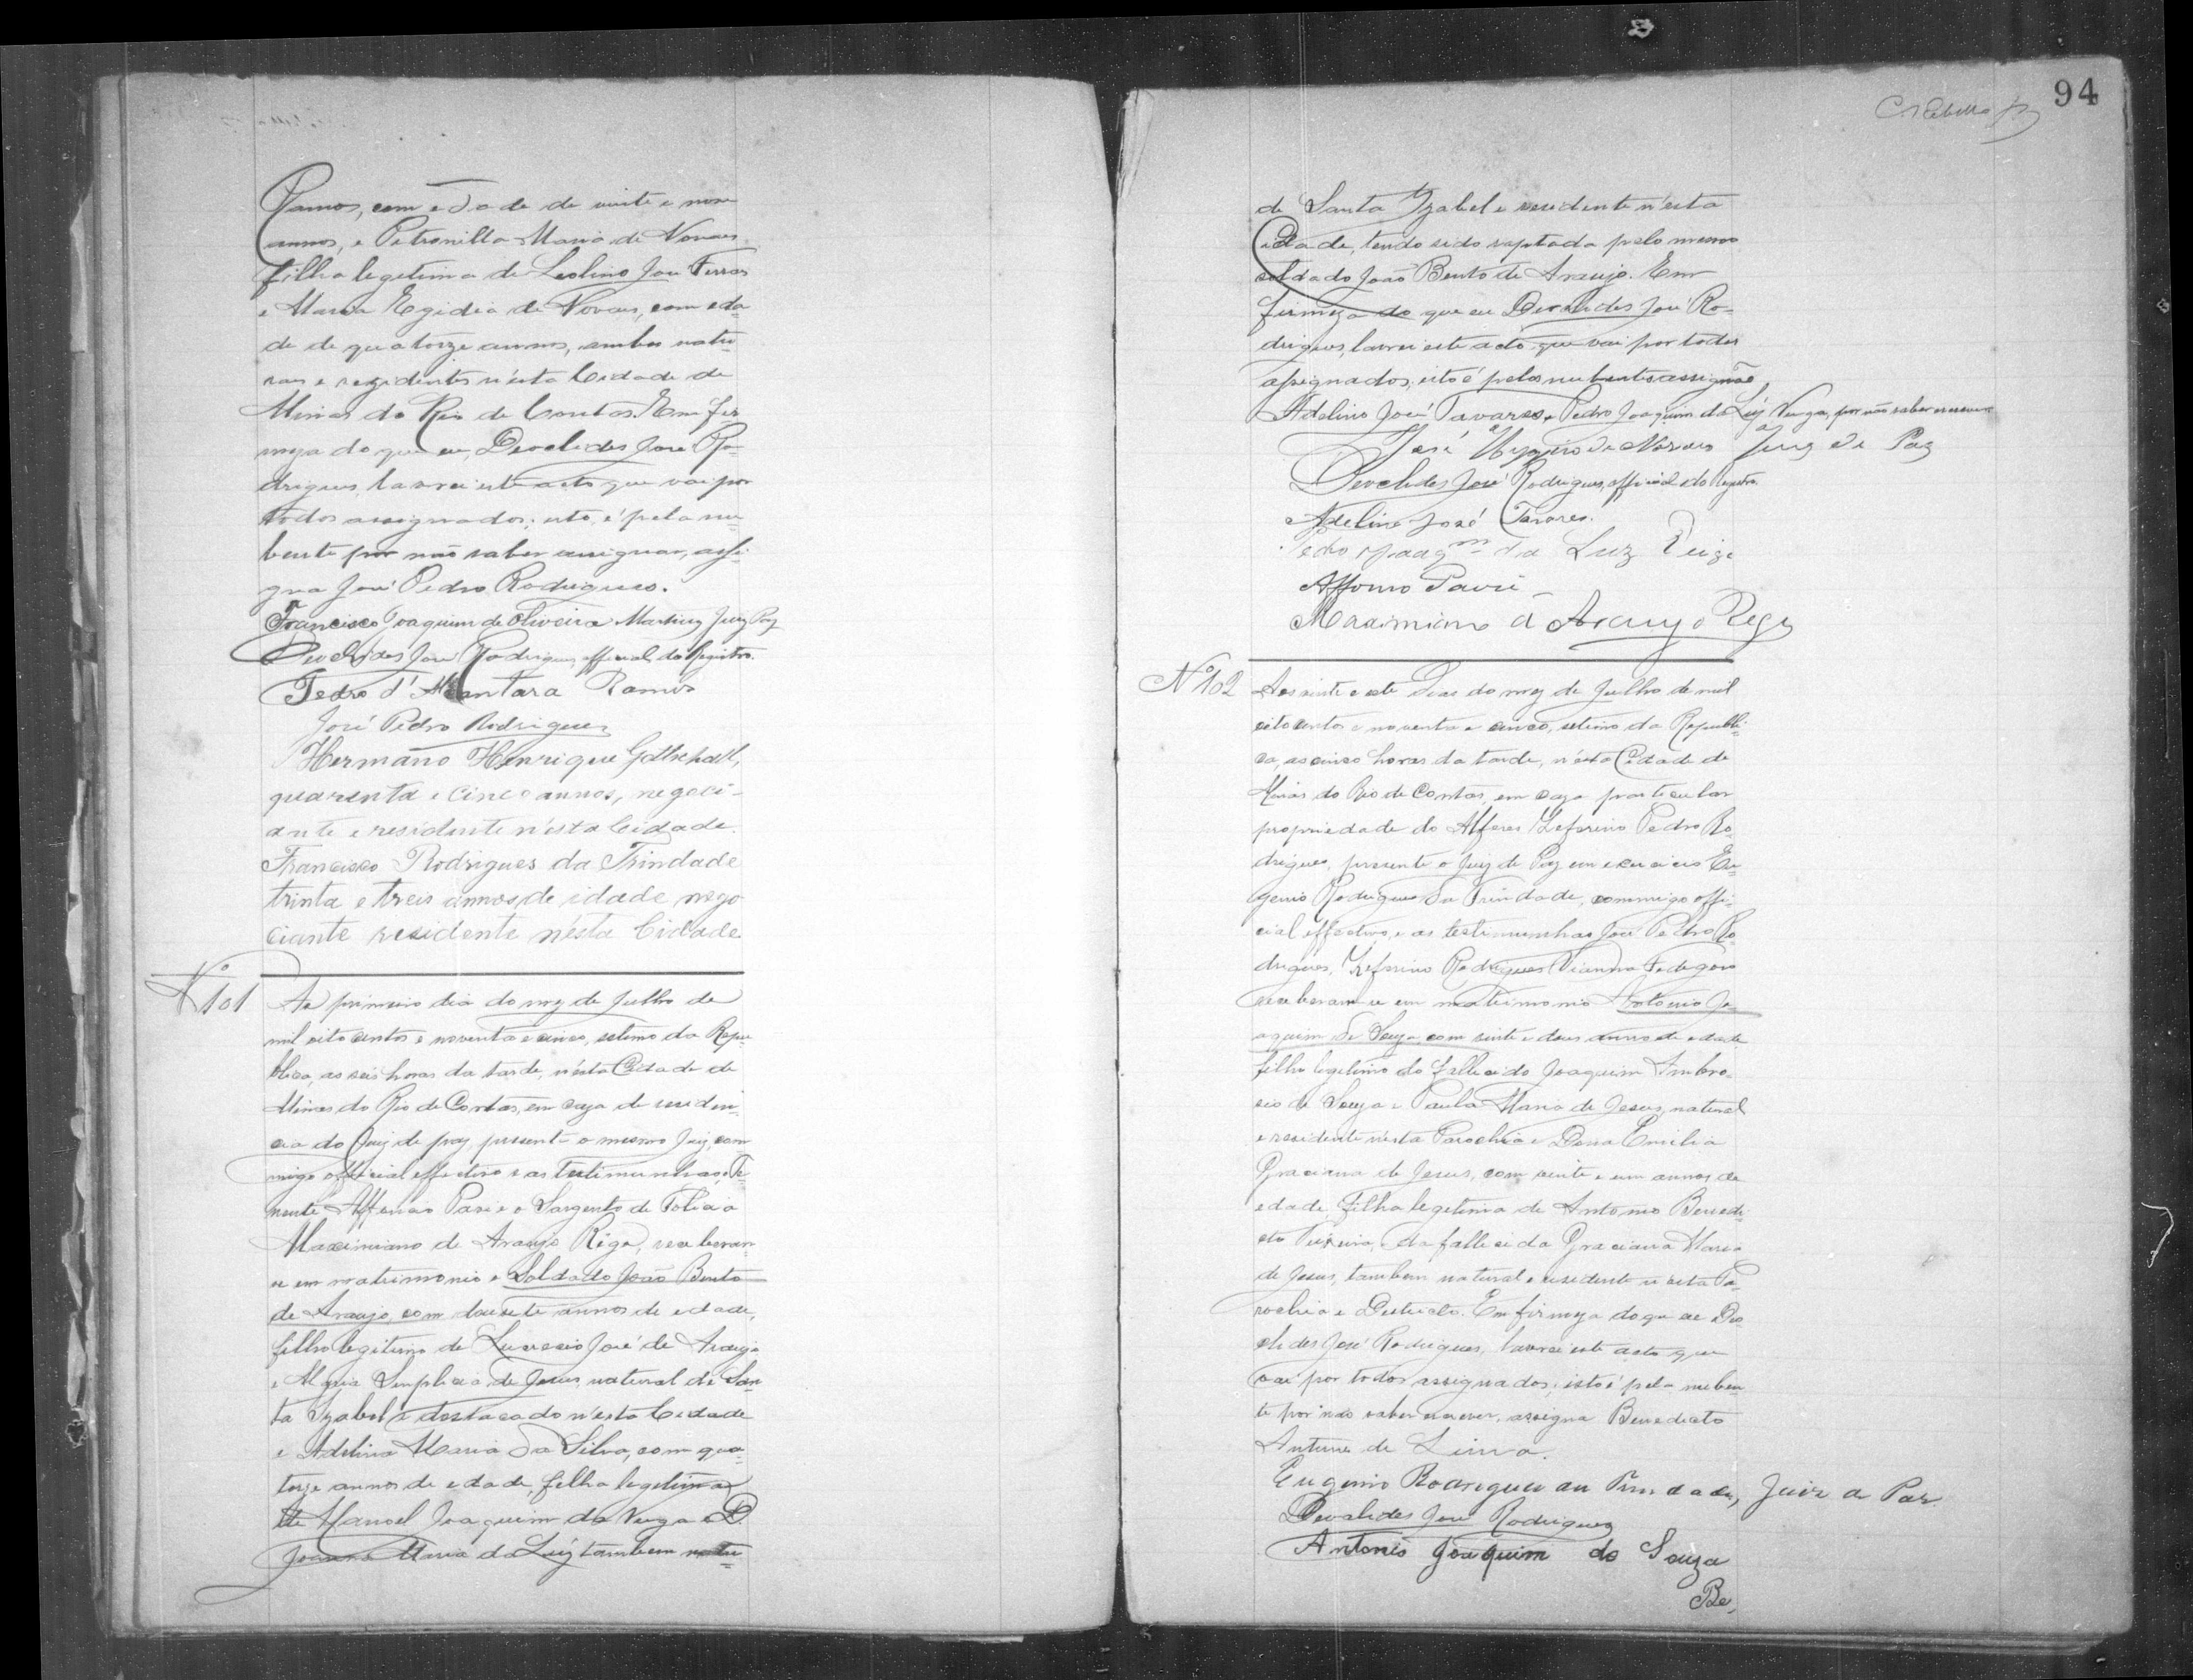 Ramos, com edade de vinte e nove
annos, e Petronilla Maria de Novaes
filha legitima de Leolino José Ferras
e Maria Egidia de Novaes, com eda
de de quatorze annos, ambos natu-
raes e rezidentes n'esta Cidade de
Minas do Rio de Contas. Em fir
meza do que eu, Deoclides José Ro-
drigues, lavrei este acto que vai por
todos assignados; isto, é pela nu-
bente por não saber assignar, assi-
gna José Pedro Rodrigues.
Francisco Joaquim de Oliveira Martins Juiz Paz
Deoclides José Rodrigues, official do Registro.
Pedro d'Alcantara Ramos
José Pedro Rodrigues
Hermano Henrique Gottschall,
quarenta e cinco annos, negoci-
ante e residente n'esta Cidade.
Francisco Rodrigues da Trindade
trinta e treis annos de idade nego
ciante residente n'ésta Cidade
Nº 101
Ao primeiro dia do mez de Julho de
mil oito centos e noventa e cinco, setimo da Repu
blica, as seis horas da tarde, n'ésta Cidade de
Minas do Rio de Contas, em caza de residen-
cia do Juiz de paz presente o mesmo Juiz, com
migo official effectivo e as testimunhas, Te-
nente Affonso Pavie e o Sargento de Policia
Maximiano de Araujo Rego, receberam
se em matrimonio o Soldado João Bento
de Araujo, com dousete annos de edade,
filho legitimo de Lucrecio José de Araujo
e Maria Simplicia de Jesus, natural de San
ta Izabel e destacado n'esta Cidade
e Adelina Maria da Silva, com qua-
torze annos de edade, filha legitima
de Manoel Joaquim da Veiga e D.
Joanna Maria da Luz tambem natu-
94
de Santa Izabel e residente n'esta
Cidade, tendo sido raptada pelo mesmo
soldado João Bento de Araujo. Em
firmeza do que eu Deoclides José Ro-
drigues, lavrei este acto que vai por todos
assignados; isto é pelos nubentes assignão
Adelino José Tavares, e Pedro Joaquim da Luz Veiga, por não saber escrever.
José Hygino de Novaes Juiz de Paz
Deoclides José Rodrigues, official do Registro.
Adelino José Tavares.
Pedro Joaqm da Luz Veiga
Affonso Pavie
Maximiano d' Araujo Rego
Nº 102
Aos vinte e sete dias do mez de Julho de mil
oito centos e noventa e cinco, setimo da Republi-
ca, as cinco horas da tarde, n'ésta Cidade de
Minas do Rio de Contas, em caza particular
propriedade do Alferes Zeferino Pedro Ro-
drigues, presente o Juiz de Paz em exercicio Eu-
genio Rodrigues da Trindade, commigo offi-
cial effectivo, e as testimunhas José Pedro Ro-
drigues, Zeferino Rodrigues Vianna
receberam se em matrimonio Antonio Jo-
aquim de Souza, com vinte e dous annos de edade
filho legitimo do fallecido Joaquim Ambro-
sio de Souza e Paula Maria de Jesus, natural
e residente n'ésta Parochia e Dona Emilia
Graciana de Jesus, com vinte e um annos de
edade, filha legitima de Antonio Benedi-
cto Teixeira, e da fallecida Graciana Maria
de Jesus, tambem natural e residente n'esta Pa-
rochia e Destricto. Em firmeza do que eu Deo
clides José Rodrigues, lavrei este acto que
vai por todos assignados; isto é pela nuben-
te por não saber escrever, assigna Benedicto
Antunes de Lima.
Eugenio Rodrigues da Trindade, Juiz de Paz
Deoclides José Rodrigues
Antonio Joaquim de Souza
Be,